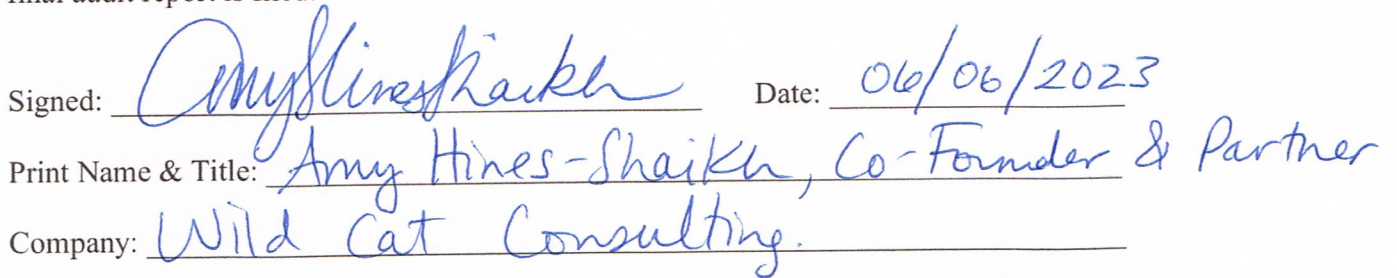 final audit report is filed.
Signed: Amy Hines-Shaikh Date: 06/06/2023
Print Name & Title: Amy Hines-Shaikh, Co-Founder & Partner
Company: Wild Cat Consulting.